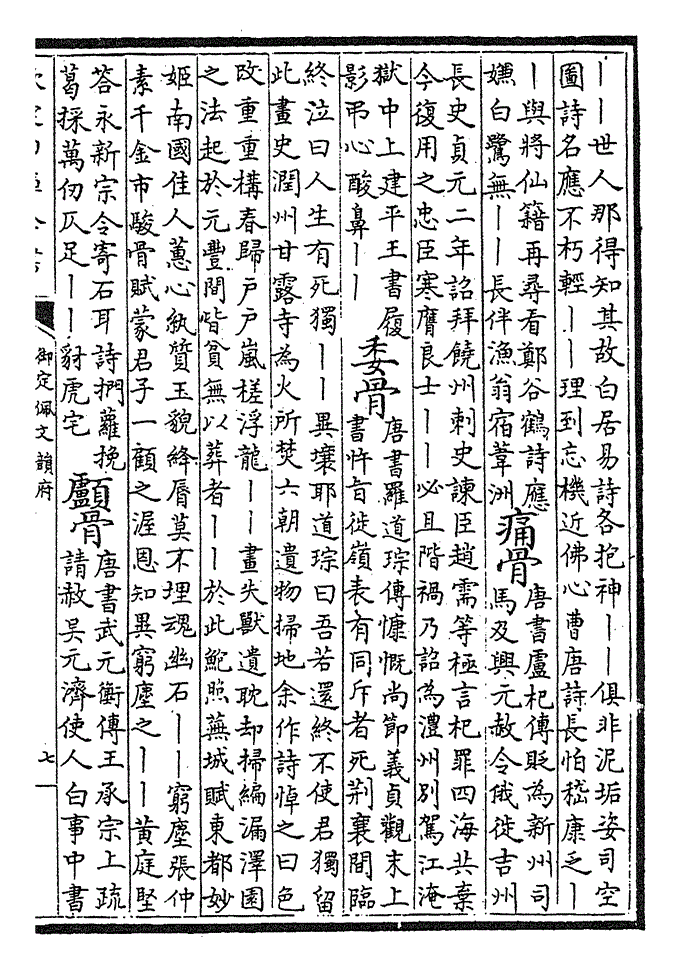 丨丨世人那得知其故白居易詩各抱神丨丨俱非泥垢姿司空
圖詩名應不朽輕丨丨理到忘機近佛心曹唐詩長怕嵇康乏丨
丨與將仙籍再尋看鄭谷鶴詩應
嫌白鷺無丨丨長伴漁翁宿葦洲
痛骨
唐書盧杞傳貶為新州司
馬及興元赦令俄徙吉州
長史貞元二年詔拜饒州刺史諫臣趙需等極言杞罪四海共棄
今復用之忠臣寒膺良士丨丨必且階禍乃詔為澧州别駕江淹
獄中上建平王書履
影弔心酸鼻丨丨
委骨
唐書羅道琮傳慷慨尚節義貞觀末上
書忤旨徙嶺表有同斥者死荆襄間臨
終泣曰人生有死獨丨丨異壤耶道琮曰吾若還終不使君獨留
此畫史潤州甘露寺為火所焚六朝遺物掃地余作詩悼之曰色
改重重構春歸户户嵐槎浮龍丨丨畫失獸遺耽却掃編漏澤園
之法起於元豐間皆貧無以葬者丨丨於此鮑照蕪城賦東都妙
姬南國佳人蕙心紈質玉貌絳脣莫不埋魂幽石丨丨窮塵張仲
素千金市駿骨賦蒙君子一顧之渥恩知異窮塵之丨丨黄庭堅
荅永新宗令寄石耳詩捫蘿挽
葛採萬仞仄足丨丨豺虎宅
顱骨
唐書武元衡傳王承宗上疏
請赦吳元濟使人白事中書
御定佩文韻府
七